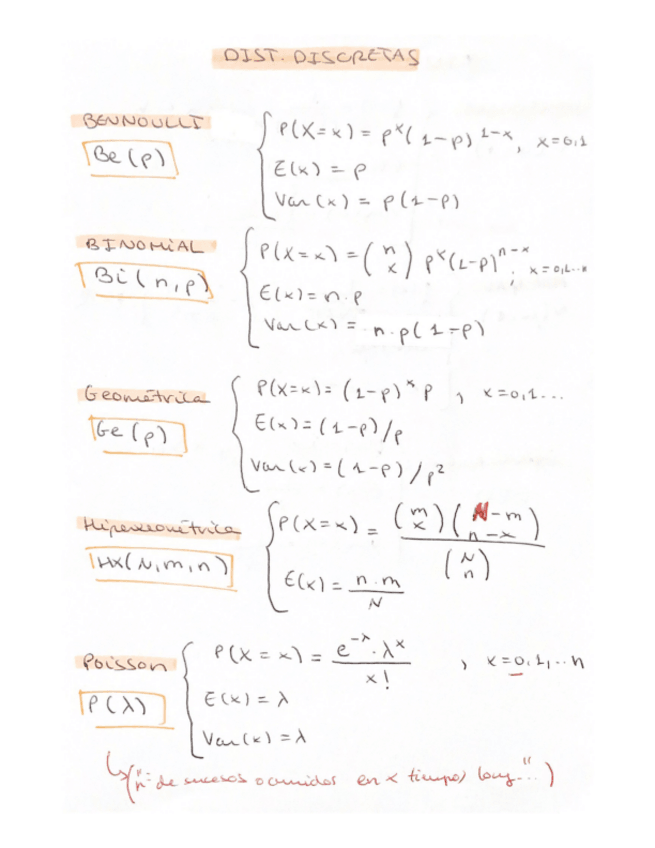 DIST. DISCRETAS
BERNOULLI
Be(p)
P(X=x) = p^x(1-p)^{1-x}, x=0,1
E(x) = p
Var(x) = p(1-p)
BINOMIAL
Bi(n,p)
P(X=x) = \binom{n}{x} p^x(1-p)^{n-x}; x=0,1...n
E(x)=n.p
Var(x)= n.p(1-p)
Geométrica
Ge(p)
P(X=x)= (1-p)^x p , x=0,1...
E(x)=(1-p)/p
Var(x)=(1-p)/p^2
Hipergeométrica
HX(N,m,n)
P(X=x) = \frac{\binom{m}{x}\binom{N-m}{n-x}}{\binom{N}{n}}
E(x) = \frac{n.m}{N}
Poisson
P(λ)
P(X=x) = \frac{e^{-λ}.λ^x}{x!} , x=0,1,..n
E(x)=λ
Var(x)=λ
("nº de sucesos ocurridos en x tiempo/long..." )